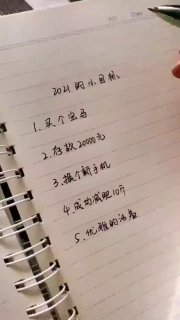 2021的小目标
1.买个宝马
2.存款20000元
3.换个新手机
4.成功减肥10斤
5.优雅的活着